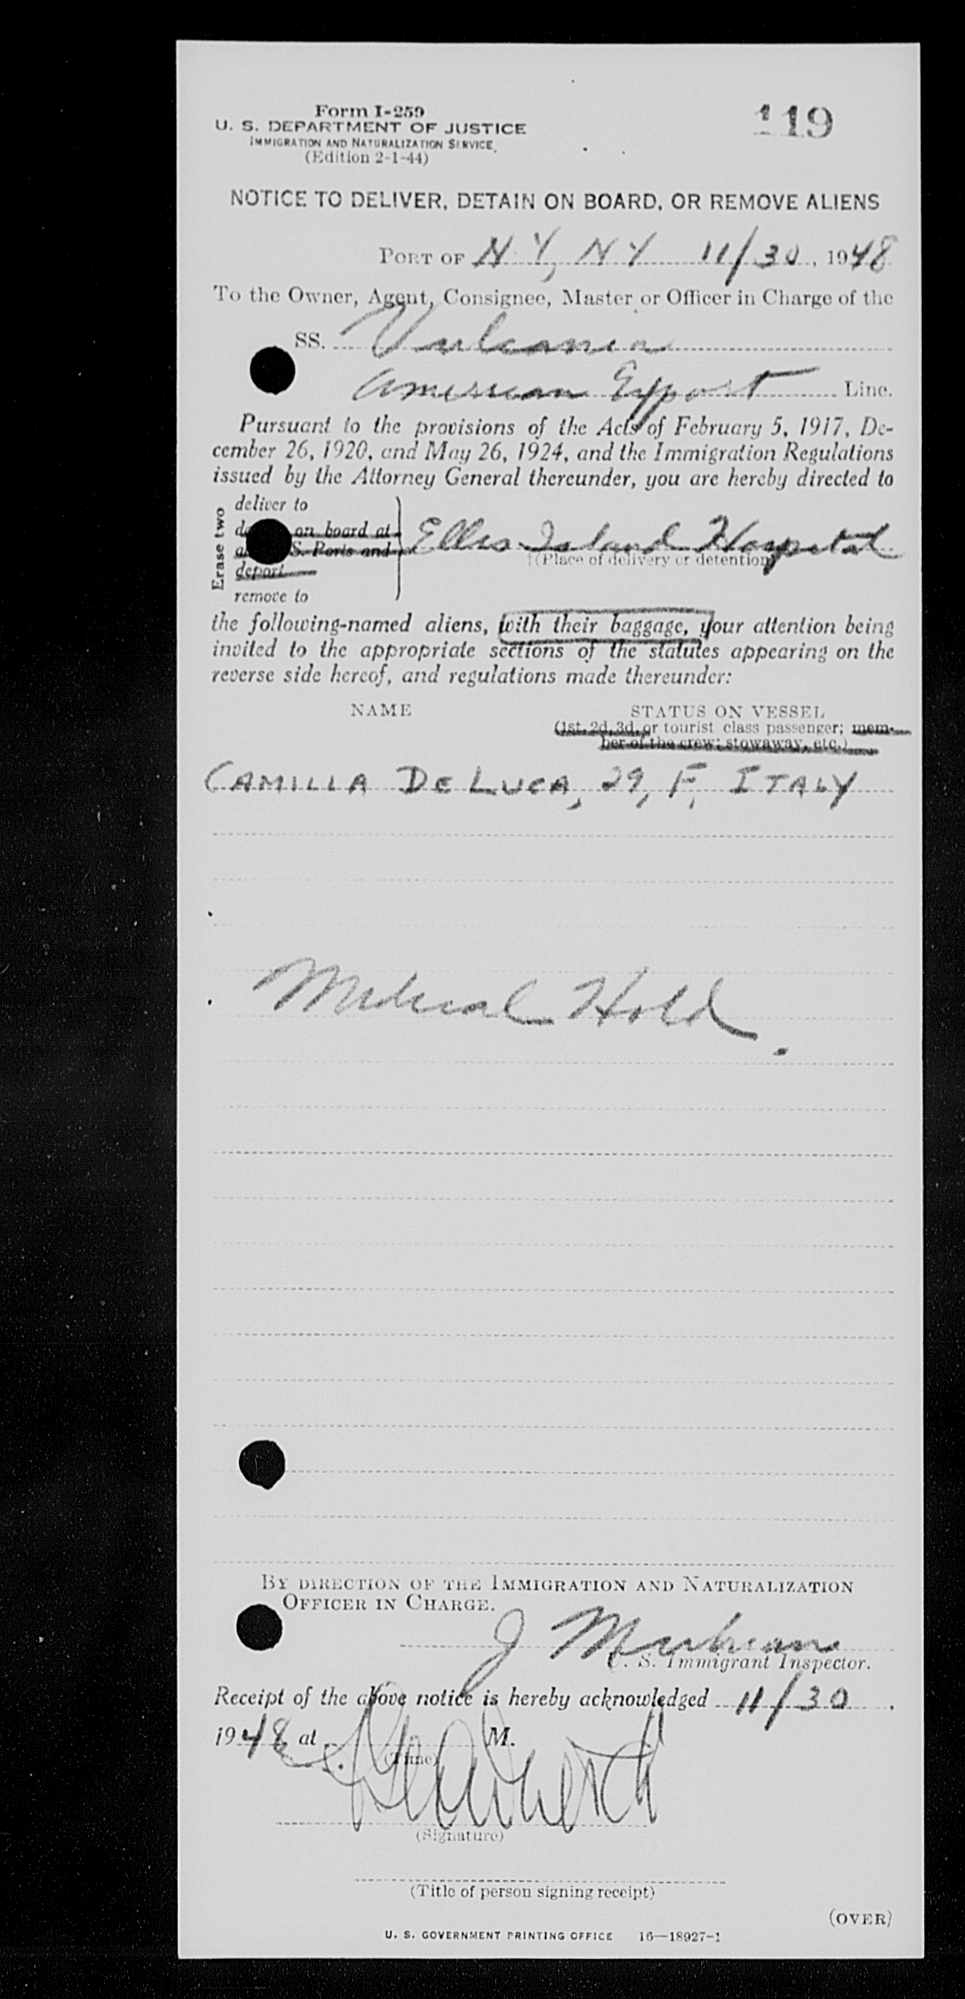 Form I-259
U. S. DEPARTMENT OF JUSTICE
IMMIGRATION AND NATURALIZATION SERVICE
(Edition 2-1-44)
119
NOTICE TO DELIVER, DETAIN ON BOARD, OR REMOVE ALIENS
PORT OF N Y, N Y 11/30, 1948
To the Owner, Agent, Consignee, Master or Officer in Charge of the
SS. Vulcania
American Export Line.
Pursuant to the provisions of the Acts of February 5, 1917, De-
cember 26, 1920, and May 26, 1924, and the Immigration Regulations
issued by the Attorney General thereunder, you are hereby directed to
Erase two
deliver to
on board at
S. Ports and
deport
remove to
Ellis Island Hospital
(Place of delivery or detention)
the following-named aliens, with their baggage, your attention being
invited to the appropriate sections of the statutes appearing on the
reverse side hereof, and regulations made thereunder:
NAME STATUS ON VESSEL
(1st, 2d, 3d, or tourist class passenger; mem-
ber of the crew; stowaway, etc.)
CAMILLA DE LUCA, 29, F, ITALY
Medical Hold.
BY DIRECTION OF THE IMMIGRATION AND NATURALIZATION
OFFICER IN CHARGE.
J
U. S. Immigrant Inspector.
Receipt of the above notice is hereby acknowledged 11/30.
1948 at M.
(Time)
(Signature)
(Title of person signing receipt)
(OVER)
U. S. GOVERNMENT PRINTING OFFICE 16—18927-1